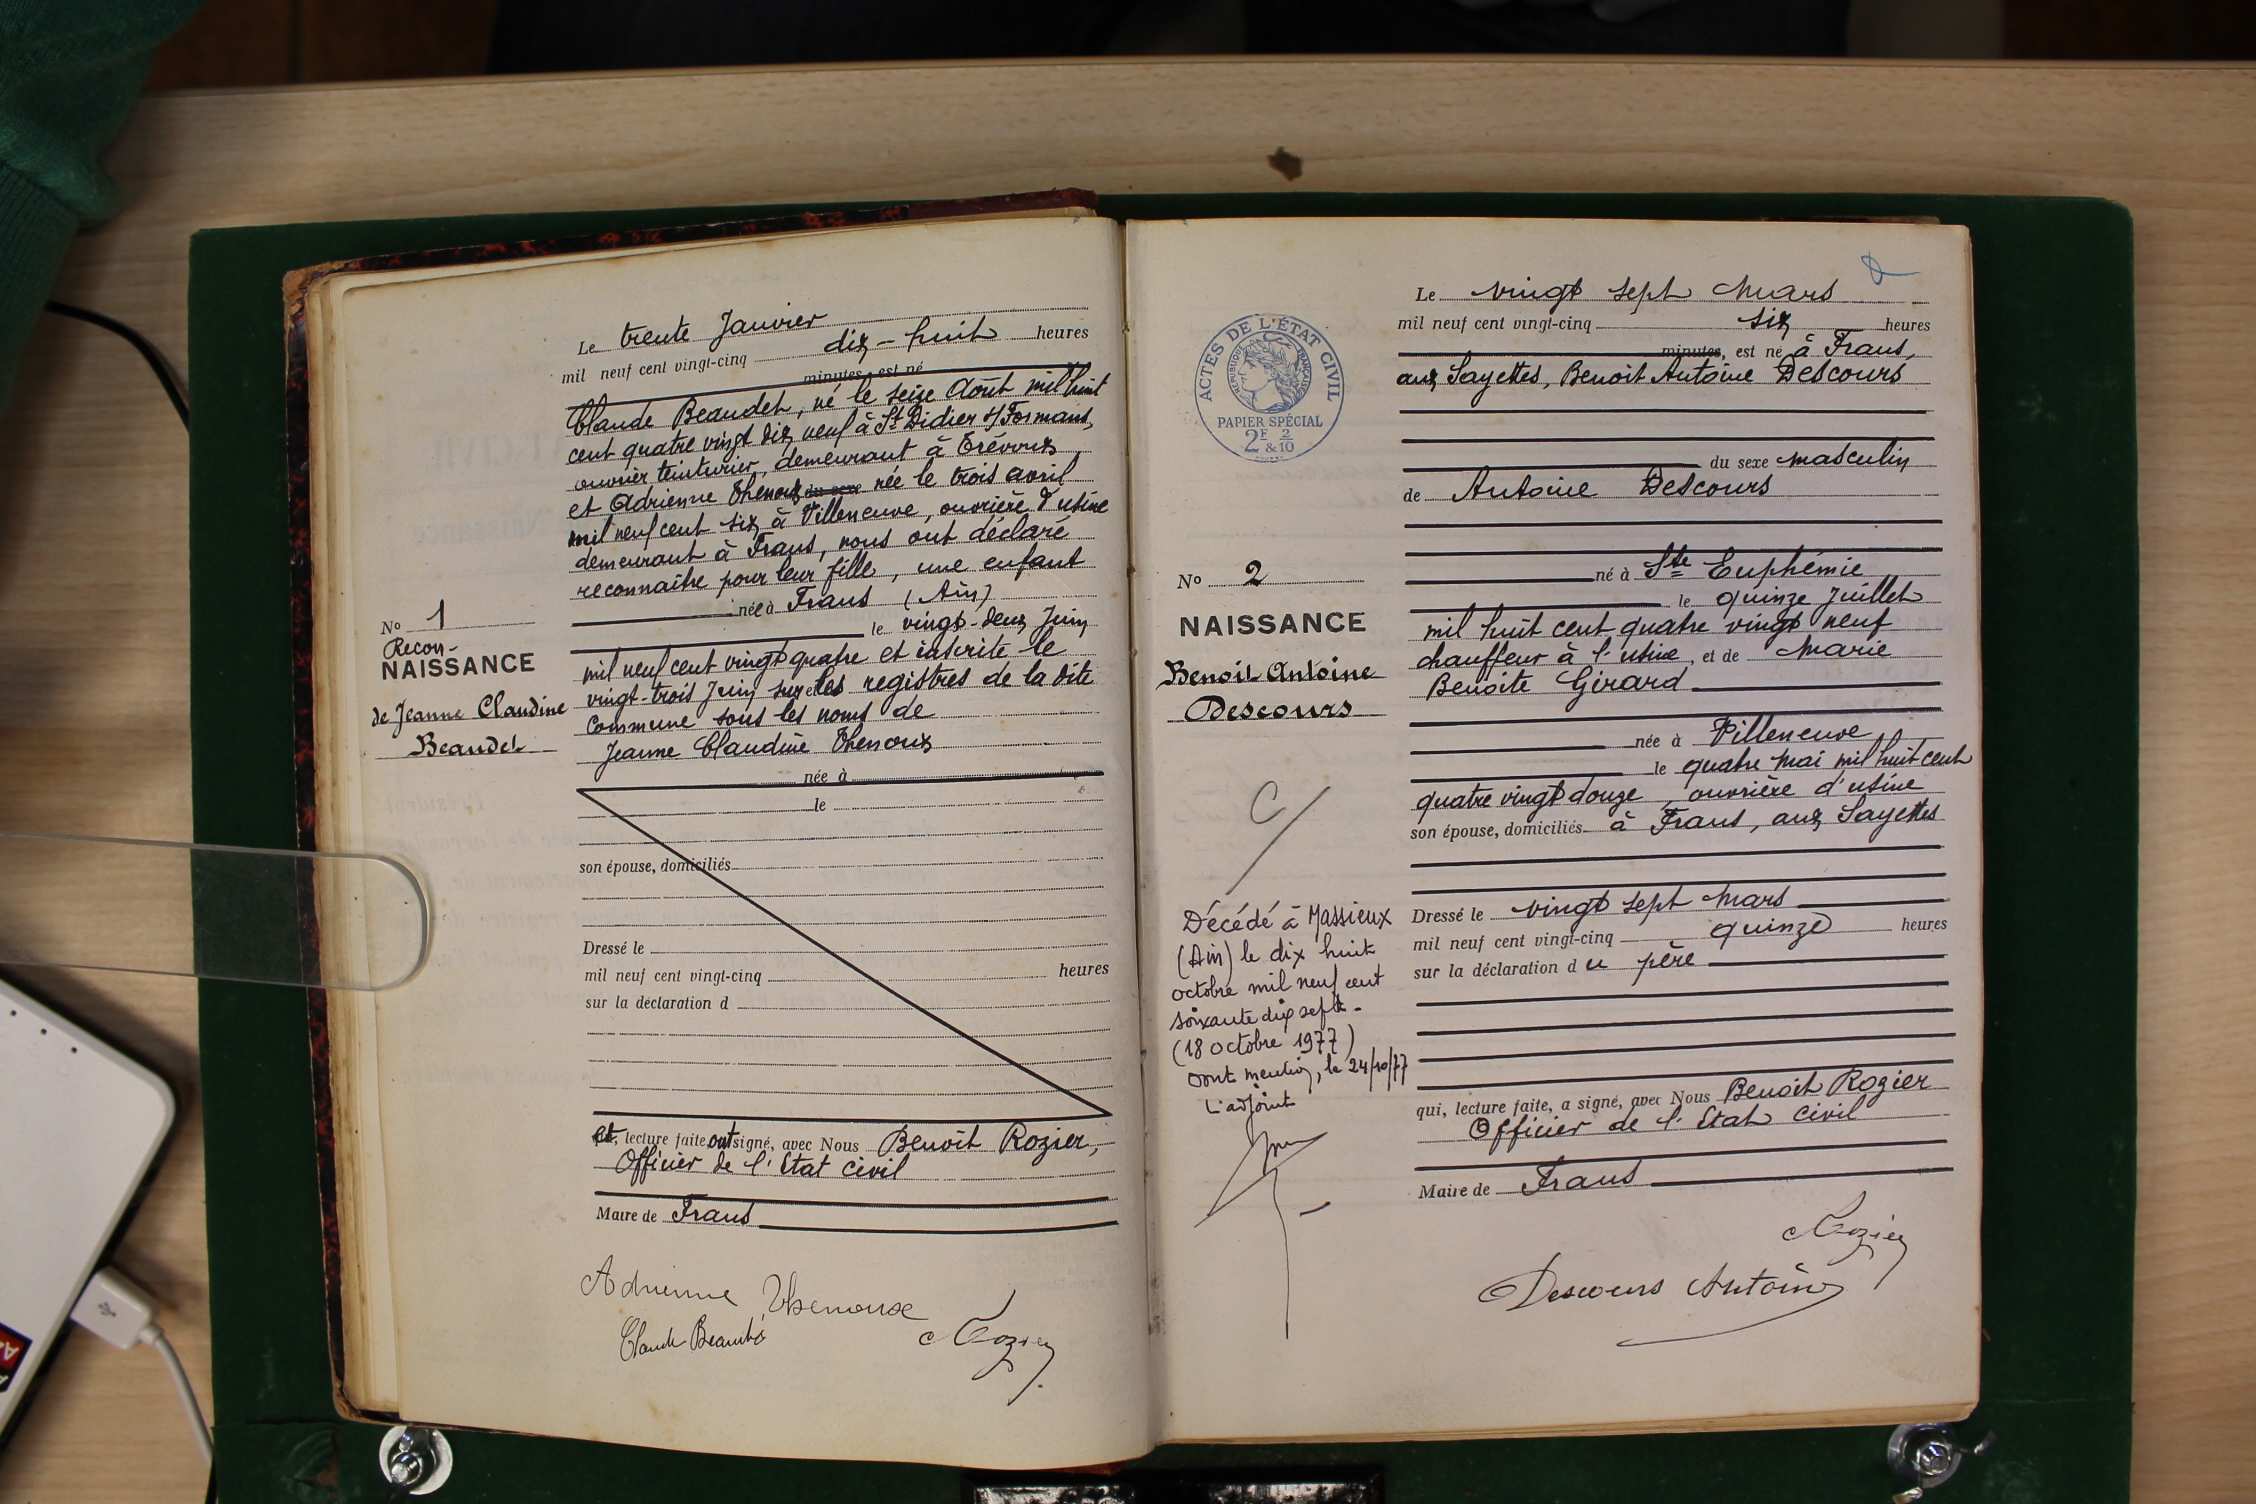 Le trente Janvier
mil neuf cent vingt-cinq dix-huit heures
minutes est né
Claude Beaudet, né le seize Août mil huit
cent quatre vingt dix neuf à St Didier s/ Formans,
ouvrier teinturier, demeurant à Trévoux
et Adrienne Thenoux du sexe née le trois avril
mil neuf cent six à Villeneuve, ouvrière d'usine
demeurant à Frans, nous ont déclaré
reconnaître pour leur fille, une enfant
née à Frans (Ain)
le vingt-deux Juin
mil neuf cent vingt quatre et inscrite le
vingt-trois Juin sur les registres de la dite
commune sous les noms de
Jeanne Claudine Thenoux
née à
le
son épouse, domiciliés
Dressé le
mil neuf cent vingt-cinq heures
sur la déclaration d
et, lecture faite ont signé, avec Nous Benoît Rozier,
Officier de l'Etat civil
Maire de Frans
Adrienne Thenoux
Claude Beaudet
Rozier
No 1
Recon-
NAISSANCE
de Jeanne Claudine
Beaudet
Le vingt sept Mars
mil neuf cent vingt-cinq six heures
minutes, est né à Frans,
aux Sayettes, Benoit Antoine Descours
du sexe masculin
de Antoine Descours
né à Ste Euphémie
le quinze Juillet
mil huit cent quatre vingt neuf
chauffeur à l'usine, et de Marie
Benoite Girard
née à Villeneuve
le quatre mai mil huit cent
quatre vingt douze, ouvrière d'usine
son épouse, domiciliés à Frans, aux Sayettes
Dressé le vingt sept Mars
mil neuf cent vingt-cinq quinze heures
sur la déclaration du père
qui, lecture faite, a signé, avec Nous Benoit Rozier
Officier de l'Etat civil
Maire de Frans
Rozier
Descours Antoine
ACTES DE L'ÉTAT CIVIL
RÉPUBLIQUE FRANÇAISE
PAPIER SPÉCIAL
2F & 2/10
No 2
NAISSANCE
Benoit Antoine
Descours
Décédé à Massieux
(Ain) le dix huit
octobre mil neuf cent
soixante dix sept.
(18 octobre 1977)
Dont mention, le 24/10/77
L'adjoint